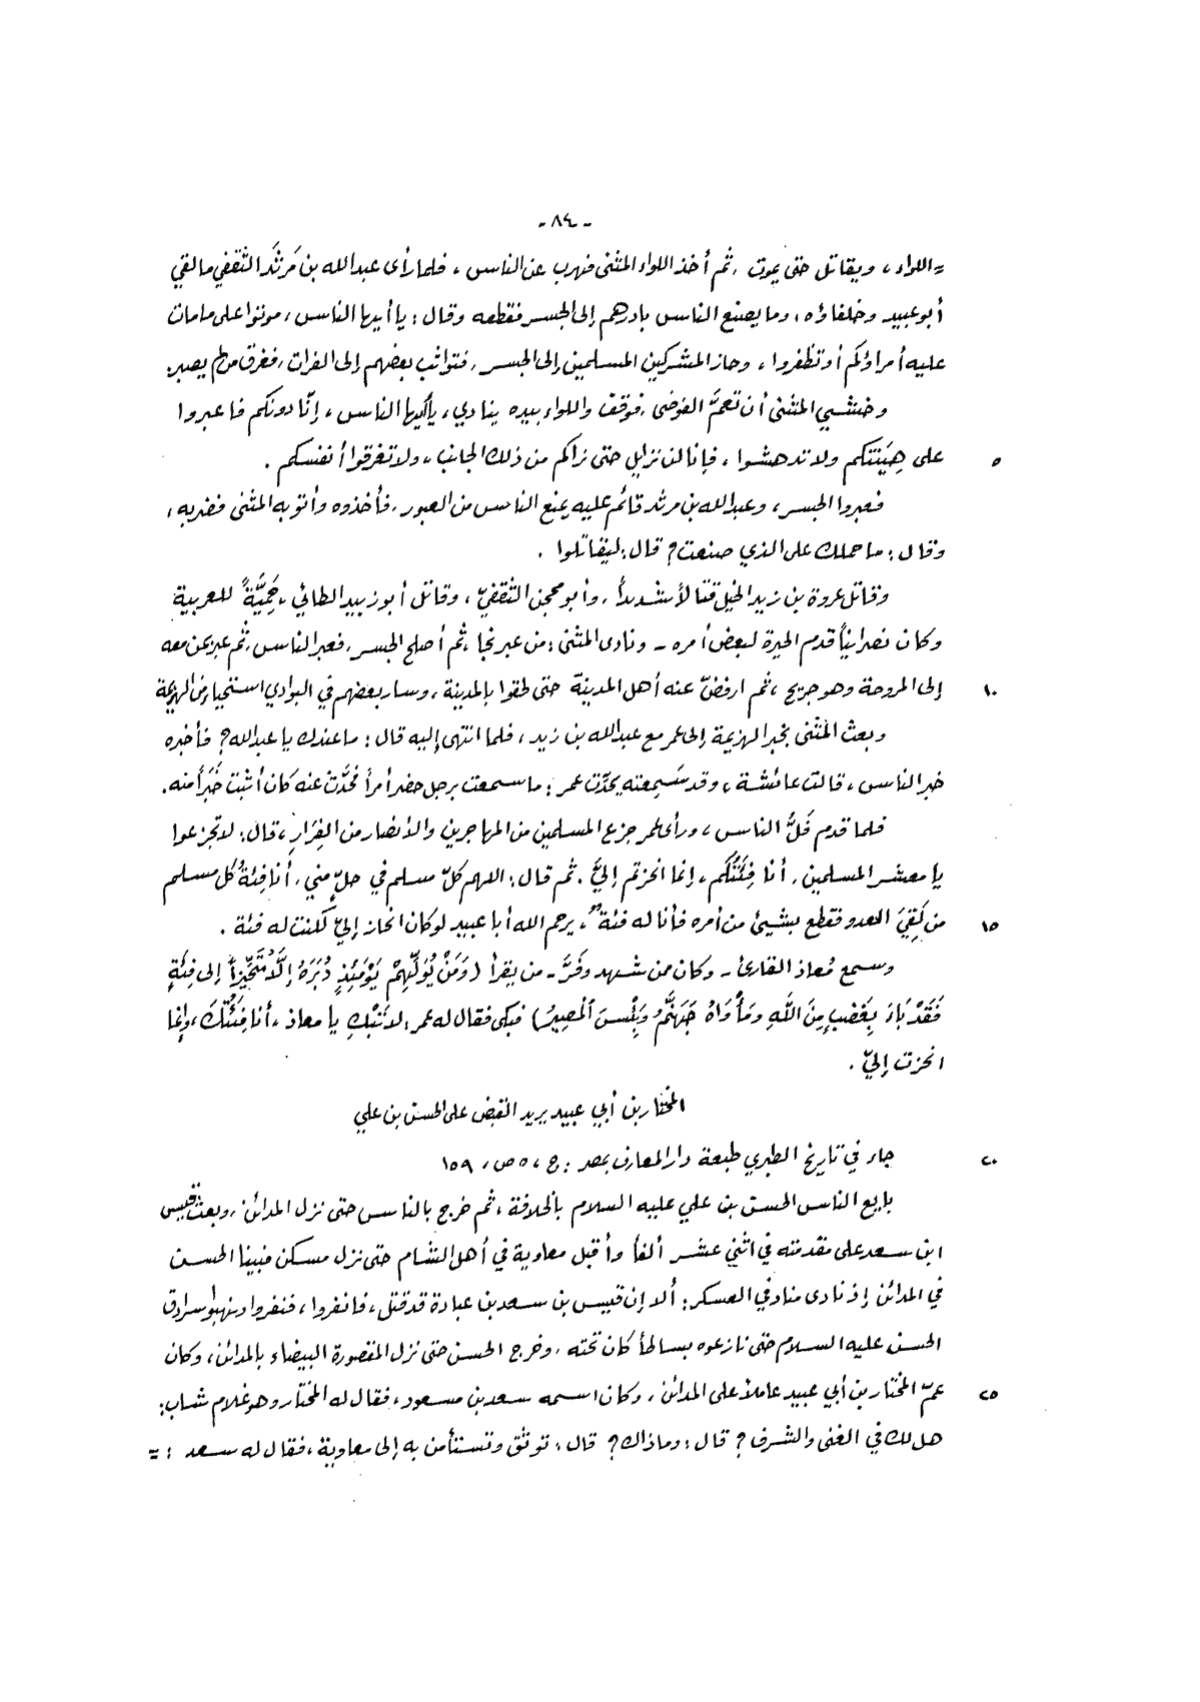 - ٨٤ -
= اللواء، ويقاتل حتى يموت، ثم أخذ اللواء المثنى فهرب عن الناس، فلما رأى عبدالله بن مَرْثَد الثقفي ما لقي
أبو عبيد وخلفاؤه، وما يصنع الناس بادرهم إلى الجسر فقطعه وقال: يا أيها الناس، موتوا على ما مات
عليه أمراؤكم أو تظفروا، وحاز المشركين المسلمين إلى الجسر، فتواثب بعضهم إلى الفرات، فغرق من لم يصبر.
وخشي المثنى أن تعمّ الفوضى، فوقف واللواء بيده ينادي، يا أيها الناس، إنّا دونكم فاعبروا
على هِيَنَتكم ولا تدهشوا، فإنا لن نزايل حتى نراكم من ذلك الجانب، ولا تغرقوا أنفسكم. ٥
فعبروا الجسر، وعبدالله بن مرثد قائم عليه يمنع الناس من العبور، فأخذوه وأتو به المثنى فضربه،
وقال: ما حملك على الذي صنعت؟ قال: ليقاتلوا.
وقاتل عروة بن زيد الخيل قتالاً شديداً، وأبو محجن الثقفيّ، وقاتل أبو زبيد الطائي، حَمِيَّةً للعربية
وكان نصرانياً قدم الحيرة لبعض أمره - ونادى المثنى: من عبر نجا، ثم أصلح الجسر، فعبر الناس، ثم عبر بمن معه
إلى المروحة وهو جريح، ثم ارفضّ عنه أهل المدينة حتى لحقوا بالمدينة، وسار بعضهم في البوادي استحياء من الهزيمة ١٠
وبعث المثنى بخبر الهزيمة إلى عمر مع عبدالله بن زيد، فلما انتهى إليه قال: ما عندك يا عبدالله؟ فأخبره
خبر الناس، قالت عائشة، وقد سَمِعته يحدّث عمر: ما سمعت برجل حضر أمراً فحَدَّث عنه كان أثبت خَبَراً منه.
فلما قدم فَلُّ الناس، ورأى عمر جزع المسلمين من المهاجرين والأنصار من الفِرَارِ، قال: لا تجزعوا
يا معشر المسلمين، أنا فِئَتُكُم، إنما انحزتم إليَّ. ثم قال: اللهم كلّ مسلم في حلٍّ مني، أنا فِئَةُ كل مسلم
من لَقِيَ العدو فقطع بشيئ من أمره فأنا له فئةٌ، يرحم الله أبا عبيد لو كان انحاز إليّ لكنت له فئة. ١٥
وسمع مُعاذ القارئ - وكان ممن شهد وفَرَّ - من يقرأ (وَمَنْ يُوَلِّهِمْ يَوْمَئِذٍ دُبُرَهُ إلَّا مُتَحَيِّزاً إلى فِئَةٍ
فَقَدْ بَاءَ بِغَضَبٍ مِنَ اللَّهِ وَمَأْوَاهُ جَهَنَّمُ وَبِئْسَ المَصِيرُ) فبكى فقال له عمر: لا تَبْكِ يا معاذ، أنا فِئَتُكَ، وإنما
انحزت إليّ.
المختار بن أبي عبيد يريد القبض على الحسن بن علي
جاء في تاريخ الطبري طبعة دار المعارف بمصر: ج، ٥ ص، ١٥٩ ٢٠
بايع الناس الحسن بن علي عليه السلام بالخلافة، ثم خرج بالناس حتى نزل المدائن، وبعث قيس
ابن سعد على مقدمته في اثني عشر ألفاً وأقبل معاوية في أهل الشام حتى نزل مسكن فبينا الحسن
في المدائن إذ نادى منادٍ في العسكر: ألا إن قيس بن سعد بن عبادة قد قتل، فانفروا، فنفروا ونهبوا سرادق
الحسن عليه السلام حتى نازعوه بساطاً كان تحته، وخرج الحسن حتى نزل المقصورة البيضاء بالمدائن، وكان
عمّ المختار بن أبي عبيد عاملاً على المدائن، وكان اسمه سعد بن مسعود، فقال له المختار وهو غلام شاب: ٢٥
هل لك في الغنى والشرف؟ قال: وما ذاك؟ قال: توثق وتستأمن به إلى معاوية، فقال له سعد: =